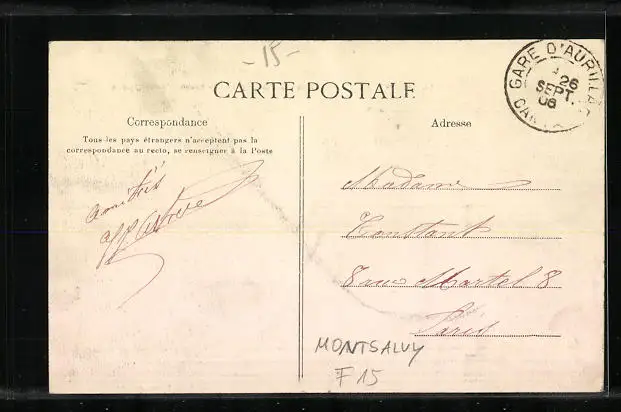 -15-
CARTE POSTALE
GARE D'AURILLAC
26
SEPT.
06
Correspondance
Tous les pays étrangers n'acceptent pas la
correspondance au recto, se renseigner à la Poste
Adresse
amitiés
Madame
Constant
8 rue Martel 8
Paris
MONTSALVY
F 15